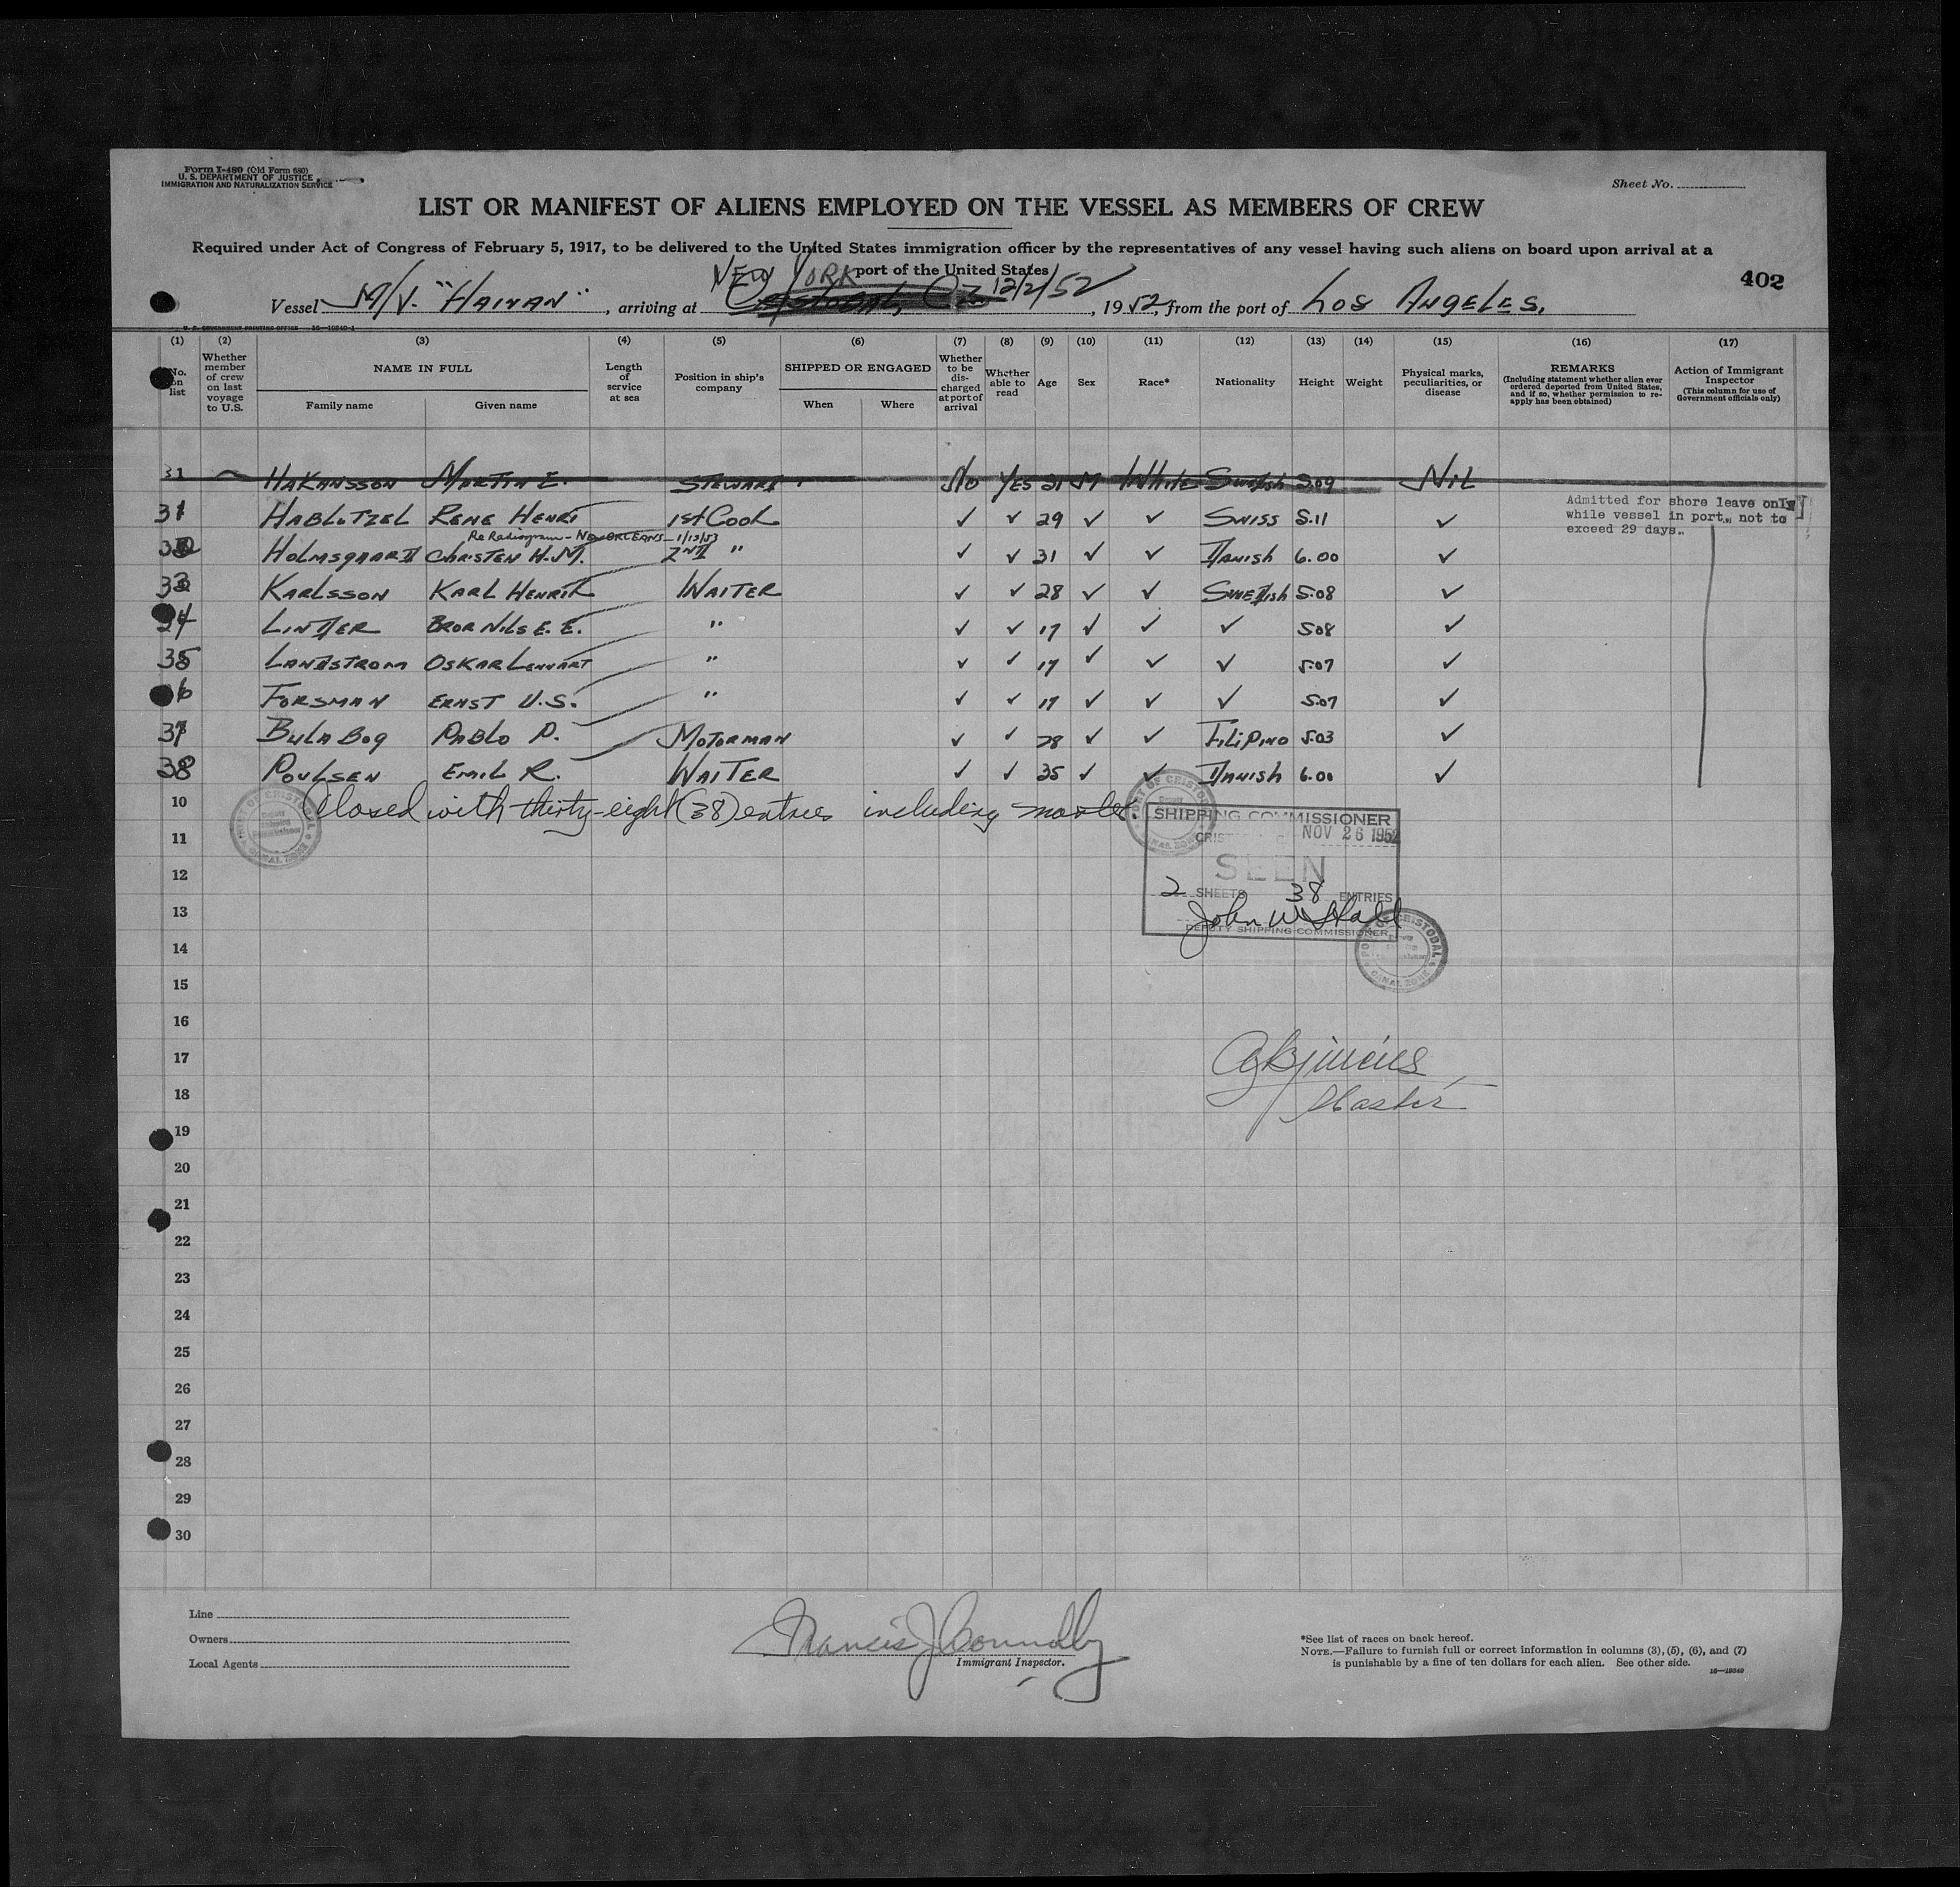 Form I-480 (Old Form 680)
U. S. DEPARTMENT OF JUSTICE
IMMIGRATION AND NATURALIZATION SERVICE
Sheet No.
LIST OR MANIFEST OF ALIENS EMPLOYED ON THE VESSEL AS MEMBERS OF CREW
Required under Act of Congress of February 5, 1917, to be delivered to the United States immigration officer by the representatives of any vessel having such aliens on board upon arrival at a
port of the United States
402
NEW YORK
12/2/52
Vessel M/V. "HAINAN", arriving at , 1952, from the port of LOS ANGELES.
U. S. GOVERNMENT PRINTING OFFICE
(1) (2) (3) (4) (5) (6) (7) (8) (9) (10) (11) (12) (13) (14) (15) (16) (17)
No. on list
Whether member of crew on last voyage to U.S.
NAME IN FULL
Family name Given name
Length of service at sea
Position in ship's company
SHIPPED OR ENGAGED
When Where
Whether to be discharged at port of arrival
Whether able to read
Age
Sex
Race*
Nationality
Height
Weight
Physical marks, peculiarities, or disease
REMARKS
(Including statement whether alien ever ordered deported from United States, and if so, whether permission to re-apply has been obtained)
Action of Immigrant Inspector
(This column for use of Government officials only)
31 HAKANSSON MARTIN E. STEWARD No YES 21 M WHITE SWEDISH 5.09 NIL
31 HABLUTZEL RENE HENRI 1st COOK ✓ ✓ 29 ✓ ✓ SWISS 5.11 ✓
Admitted for shore leave only
while vessel in port, not to
exceed 29 days.
Re Radiogram - NEW ORLEANS - 1/13/53
32 HOLMSGAARD CHRISTEN H.M. 2ND " ✓ ✓ 31 ✓ ✓ DANISH 6.00 ✓
33 KARLSSON KARL HENRIK WAITER ✓ ✓ 28 ✓ ✓ SWEDISH 5.08 ✓
34 LINDER BROR NILS E. E. " ✓ ✓ 17 ✓ ✓ ✓ 5.08 ✓
35 LANDSTROM OSKAR LENNART " ✓ ✓ 17 ✓ ✓ ✓ 5.07 ✓
36 FORSMAN ERNST U.S. " ✓ ✓ 17 ✓ ✓ ✓ 5.07 ✓
37 BULABOG PABLO P. MOTORMAN ✓ ✓ 28 ✓ ✓ FILIPINO 5.03 ✓
38 POULSEN EMIL R. WAITER ✓ ✓ 35 ✓ ✓ DANISH 6.00 ✓
10 Closed with thirty-eight (38) entries including master.
PORT OF CRISTOBAL
CANAL ZONE
SHIPPING COMMISSIONER
NOV 26 1952
SEEN
2 SHEETS 38 ENTRIES
John W. Hall
DEPUTY SHIPPING COMMISSIONER
PORT OF CRISTOBAL
CANAL ZONE
11
12
13
14
15
16
17
Master
18
19
20
21
22
23
24
25
26
27
28
29
30
Line
Owners
Local Agents
Francis J Connolly
Immigrant Inspector.
*See list of races on back hereof.
NOTE.—Failure to furnish full or correct information in columns (3), (5), (6), and (7)
is punishable by a fine of ten dollars for each alien. See other side.